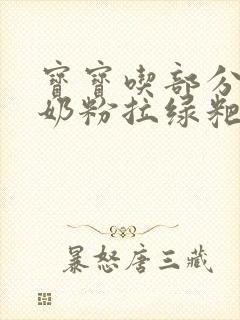 寳寳喫部分
奶粉拉綠粑
暴怒唐三藏